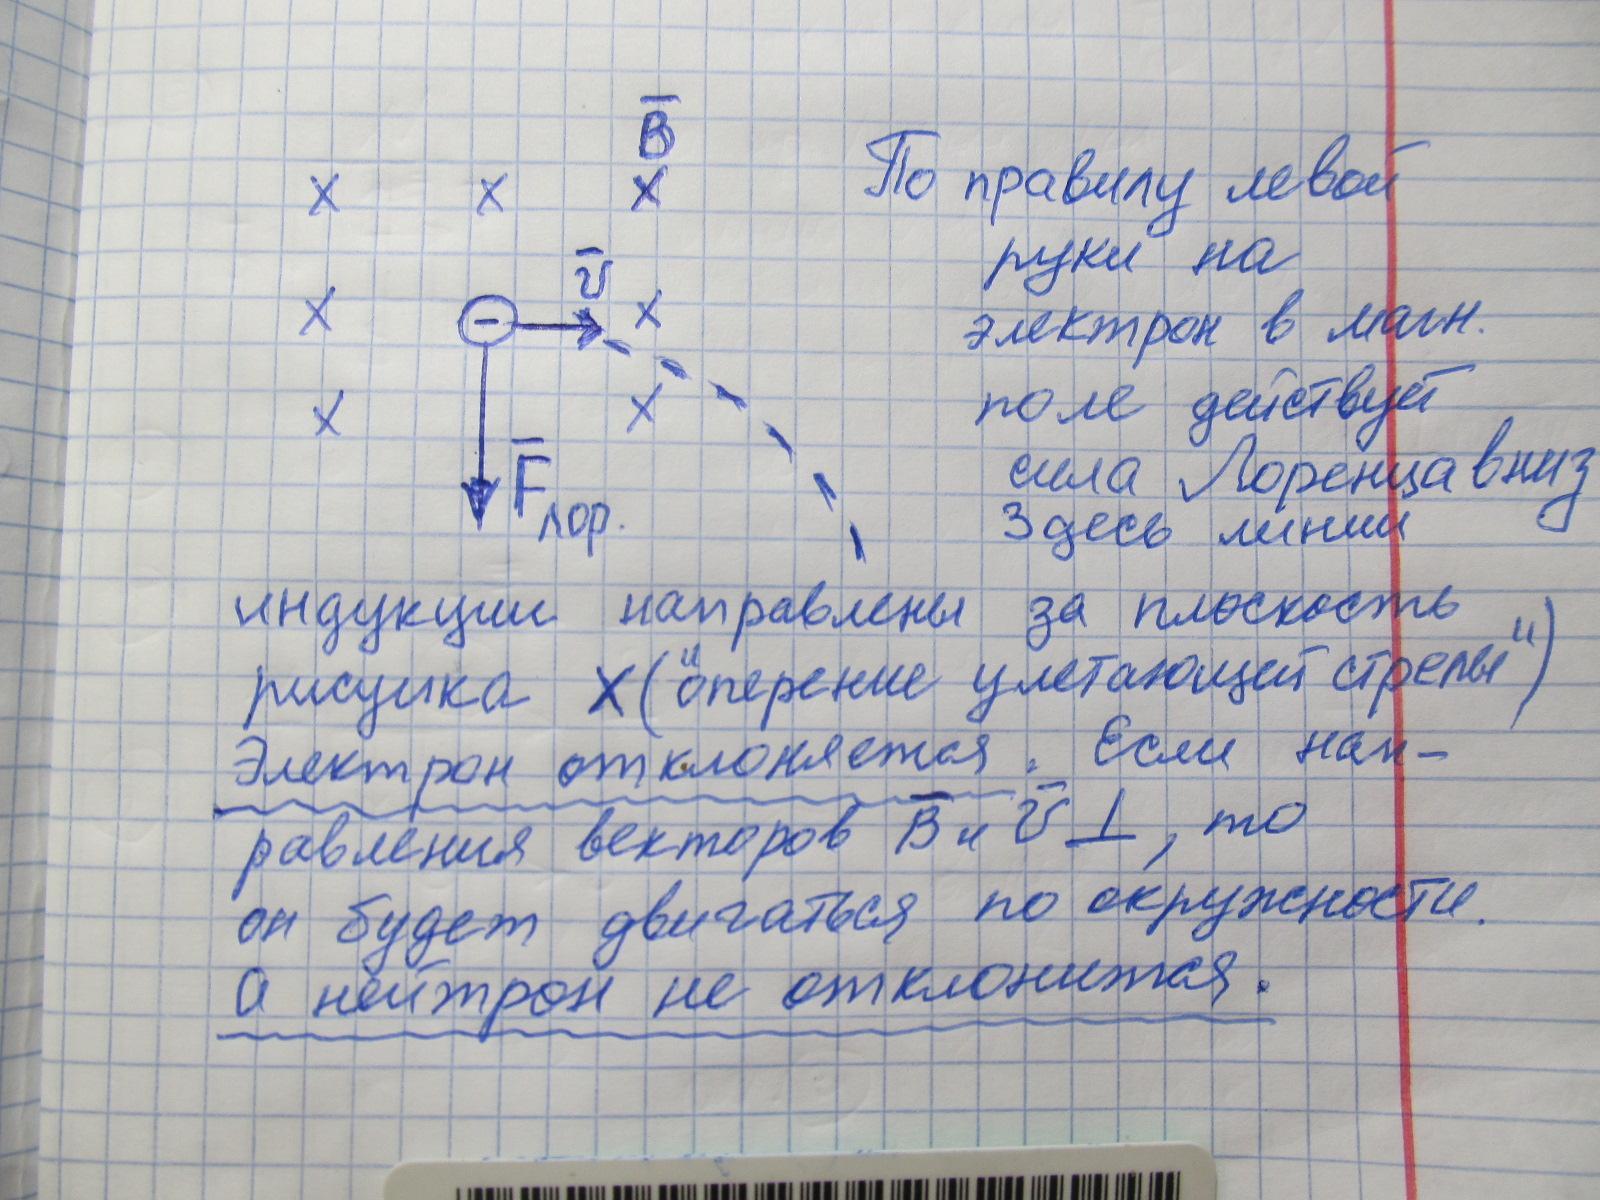 B̄
По правилу левой
руки на
v̄
электрон в магн.
поле действует
сила Лоренца вниз
F̄лор.
Здесь линии
индукции направлены за плоскость
рисунка X ("оперение улетающей стрелы")
Электрон отклоняется. Если нап-
равления векторов B̄ и v̄ ⊥, то
он будет двигаться по окружности.
а нейтрон не отклонится.